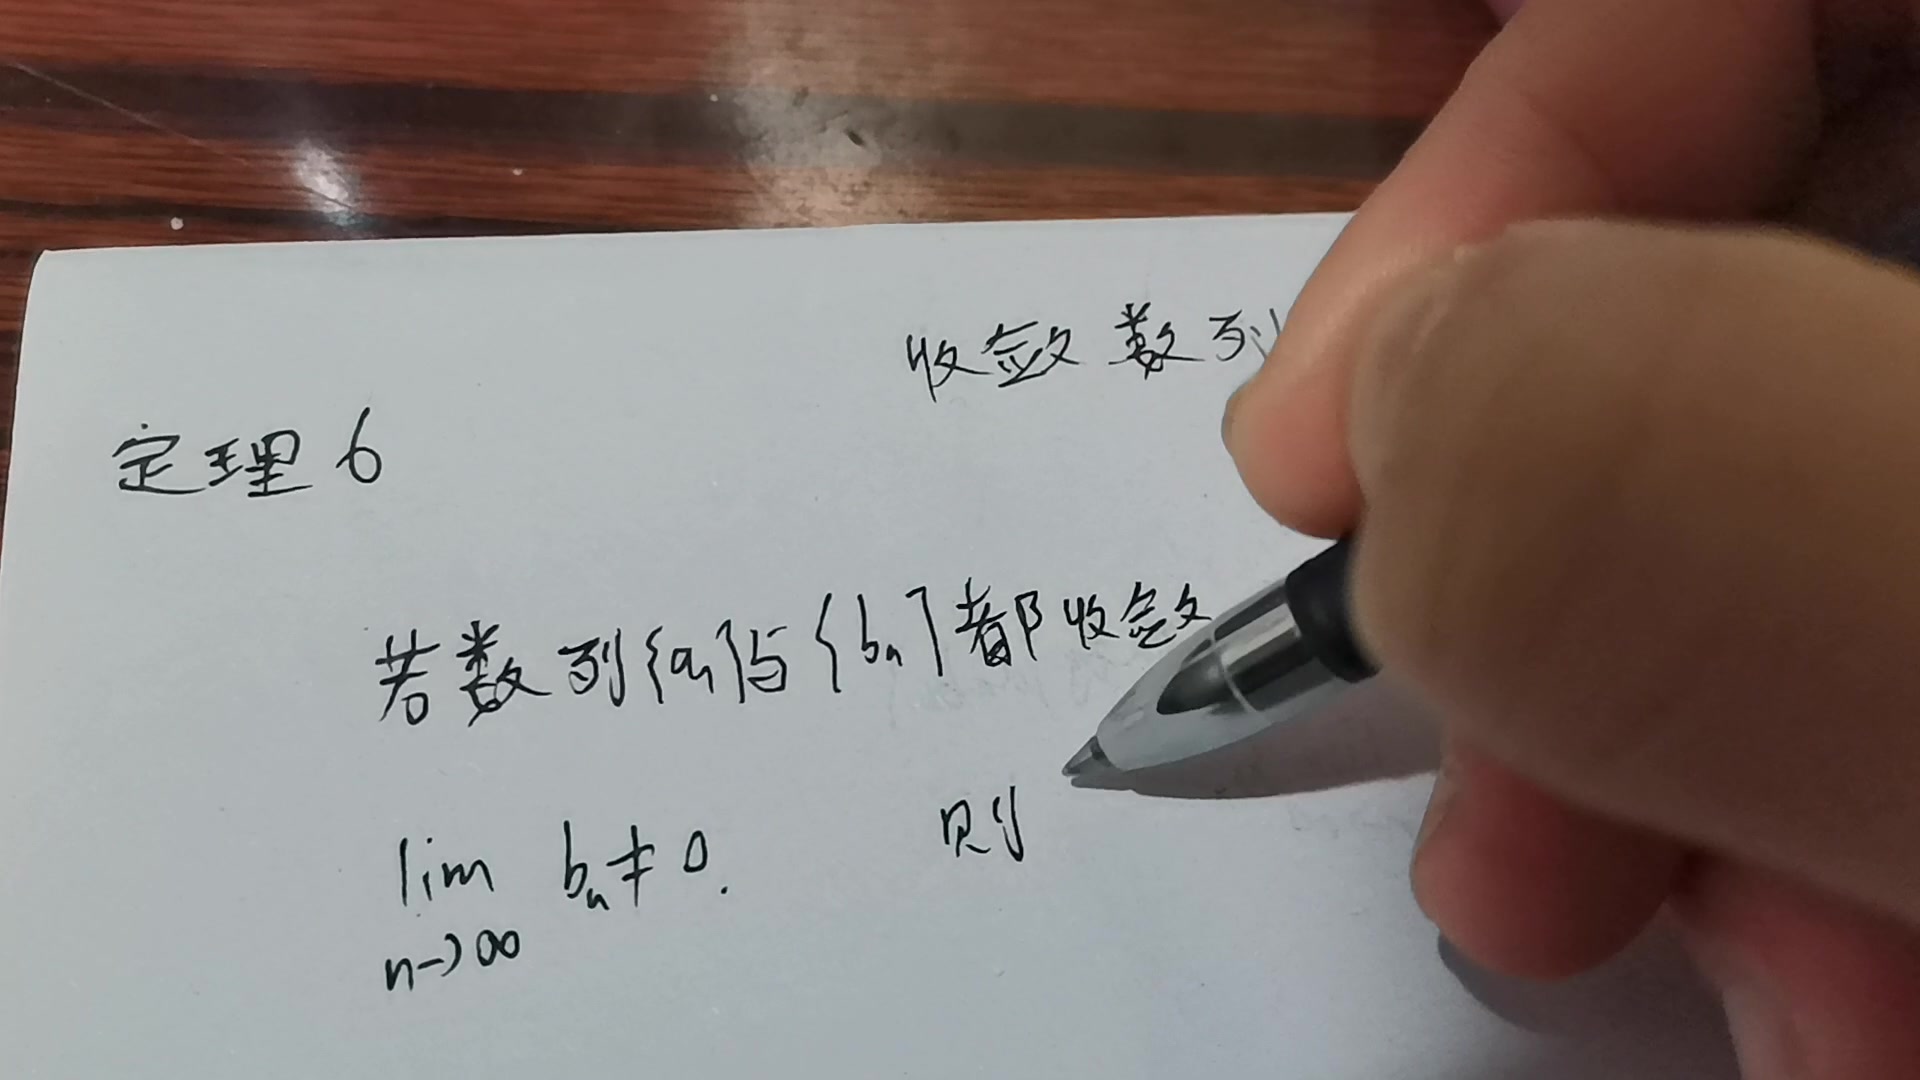 收敛数列
定理6
若数列{an}与{bn}都收敛
lim bn≠0. 则
n→∞